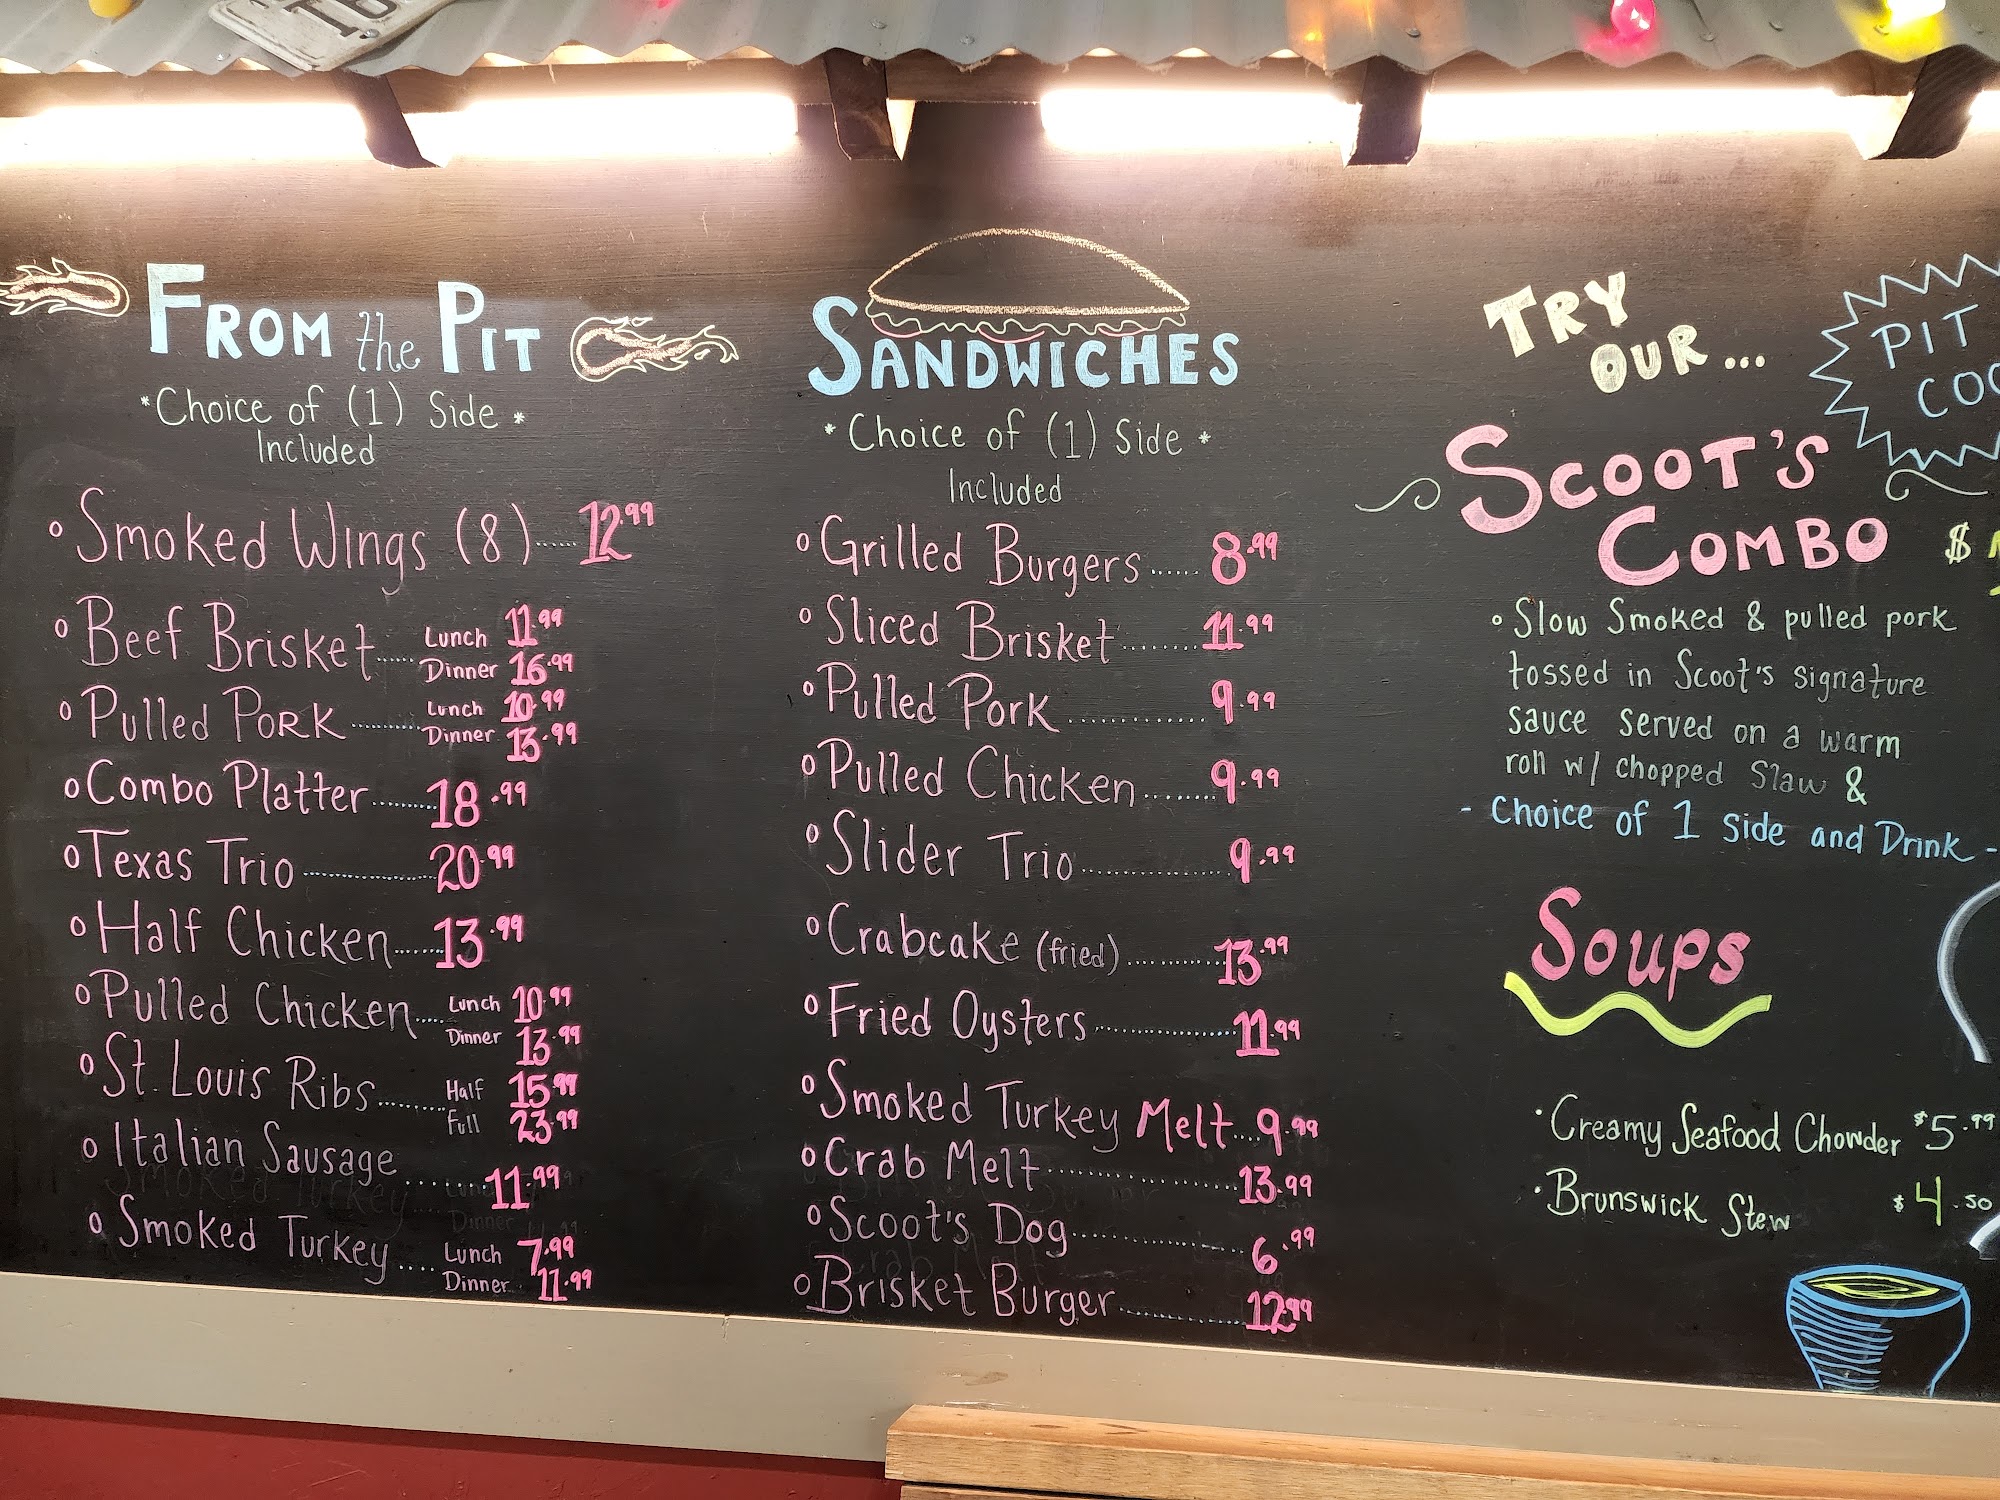 FROM the PIT
*Choice of (1) Side*
Included
Smoked Wings (8)......12.99
Beef Brisket..... Lunch 11.99
Dinner 16.99
Pulled Pork.......... Lunch 10.99
Dinner 13.99
Combo Platter........18.99
Texas Trio.................20.99
Half Chicken......13.99
Pulled Chicken.... Lunch 10.99
Dinner 13.99
St. Louis Ribs........ Half 15.99
Full 23.99
Italian Sausage
........11.99
Smoked Turkey.... Lunch 7.99
Dinner 11.99
SANDWICHES
*Choice of (1) Side*
Included
Grilled Burgers.....8.99
Sliced Brisket........11.99
Pulled Pork.............9.99
Pulled Chicken........9.99
Slider Trio................9.99
Crabcake (fried)...........13.99
Fried Oysters...............11.99
Smoked Turkey Melt....9.99
Crab Melt......................13.99
Scoot's Dog...................6.99
Brisket Burger..............12.99
TRY
OUR...
PIT
SCOOT'S
COMBO $
Slow Smoked & pulled pork
tossed in Scoot's signature
sauce served on a warm
roll w/ chopped Slaw &
- Choice of 1 Side and Drink -
Soups
Creamy Seafood Chowder $5.99
Brunswick Stew $4.50